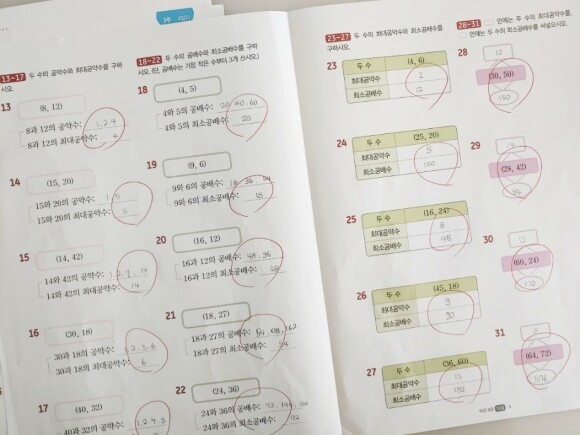 13~17 두 수의 공약수와 최대공약수를 구하시오.
13
(8, 12)
8과 12의 공약수: 1, 2, 4
8과 12의 최대공약수: 4
14
(15, 20)
15와 20의 공약수: 1, 5
15와 20의 최대공약수: 5
15
(14, 42)
14와 42의 공약수: 1, 2, 7, 14
14와 42의 최대공약수: 14
16
(30, 18)
30과 18의 공약수: 1, 2, 3, 6
30과 18의 최대공약수: 6
17
(40, 32)
40과 32의 공약수: 1, 2, 4, 8
18~22 두 수의 공배수와 최소공배수를 구하
시오. (단, 공배수는 가장 작은 수부터 3개 쓰시오.)
18
(4, 5)
4와 5의 공배수: 20, 40, 60
4와 5의 최소공배수: 20
19
(9, 6)
9와 6의 공배수: 18, 36, 54
9와 6의 최소공배수: 18
20
(16, 12)
16과 12의 공배수: 48, 96
16과 12의 최소공배수: 48
21
(18, 27)
18과 27의 공배수: 54, 108, 162
18과 27의 최소공배수: 54
22
(24, 36)
24와 36의 공배수: 72, 144
24와 36의 최소공배수: 72
23~27 두 수의 최대공약수와 최소공배수를
구하시오.
23
두 수 (4, 6)
최대공약수 2
최소공배수 12
24
두 수 (25, 20)
최대공약수 5
최소공배수 100
25
두 수 (16, 24)
최대공약수 8
최소공배수 48
26
두 수 (45, 18)
최대공약수 9
최소공배수 90
27
두 수 (36, 60)
최대공약수 12
최소공배수 180
28~31 안에는 두 수의 최대공약수를,
안에는 두 수의 최소공배수를 써넣으시오.
28
10
(30, 50)
150
29
14
(28, 42)
84
30
12
(60, 24)
120
31
8
(64, 72)
576